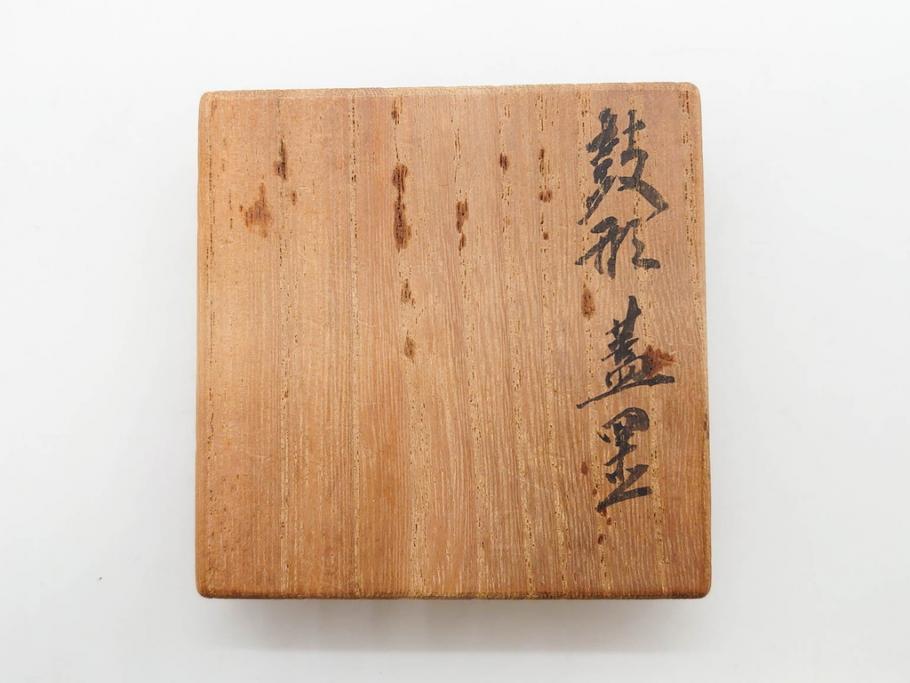 鼓形 蓋置